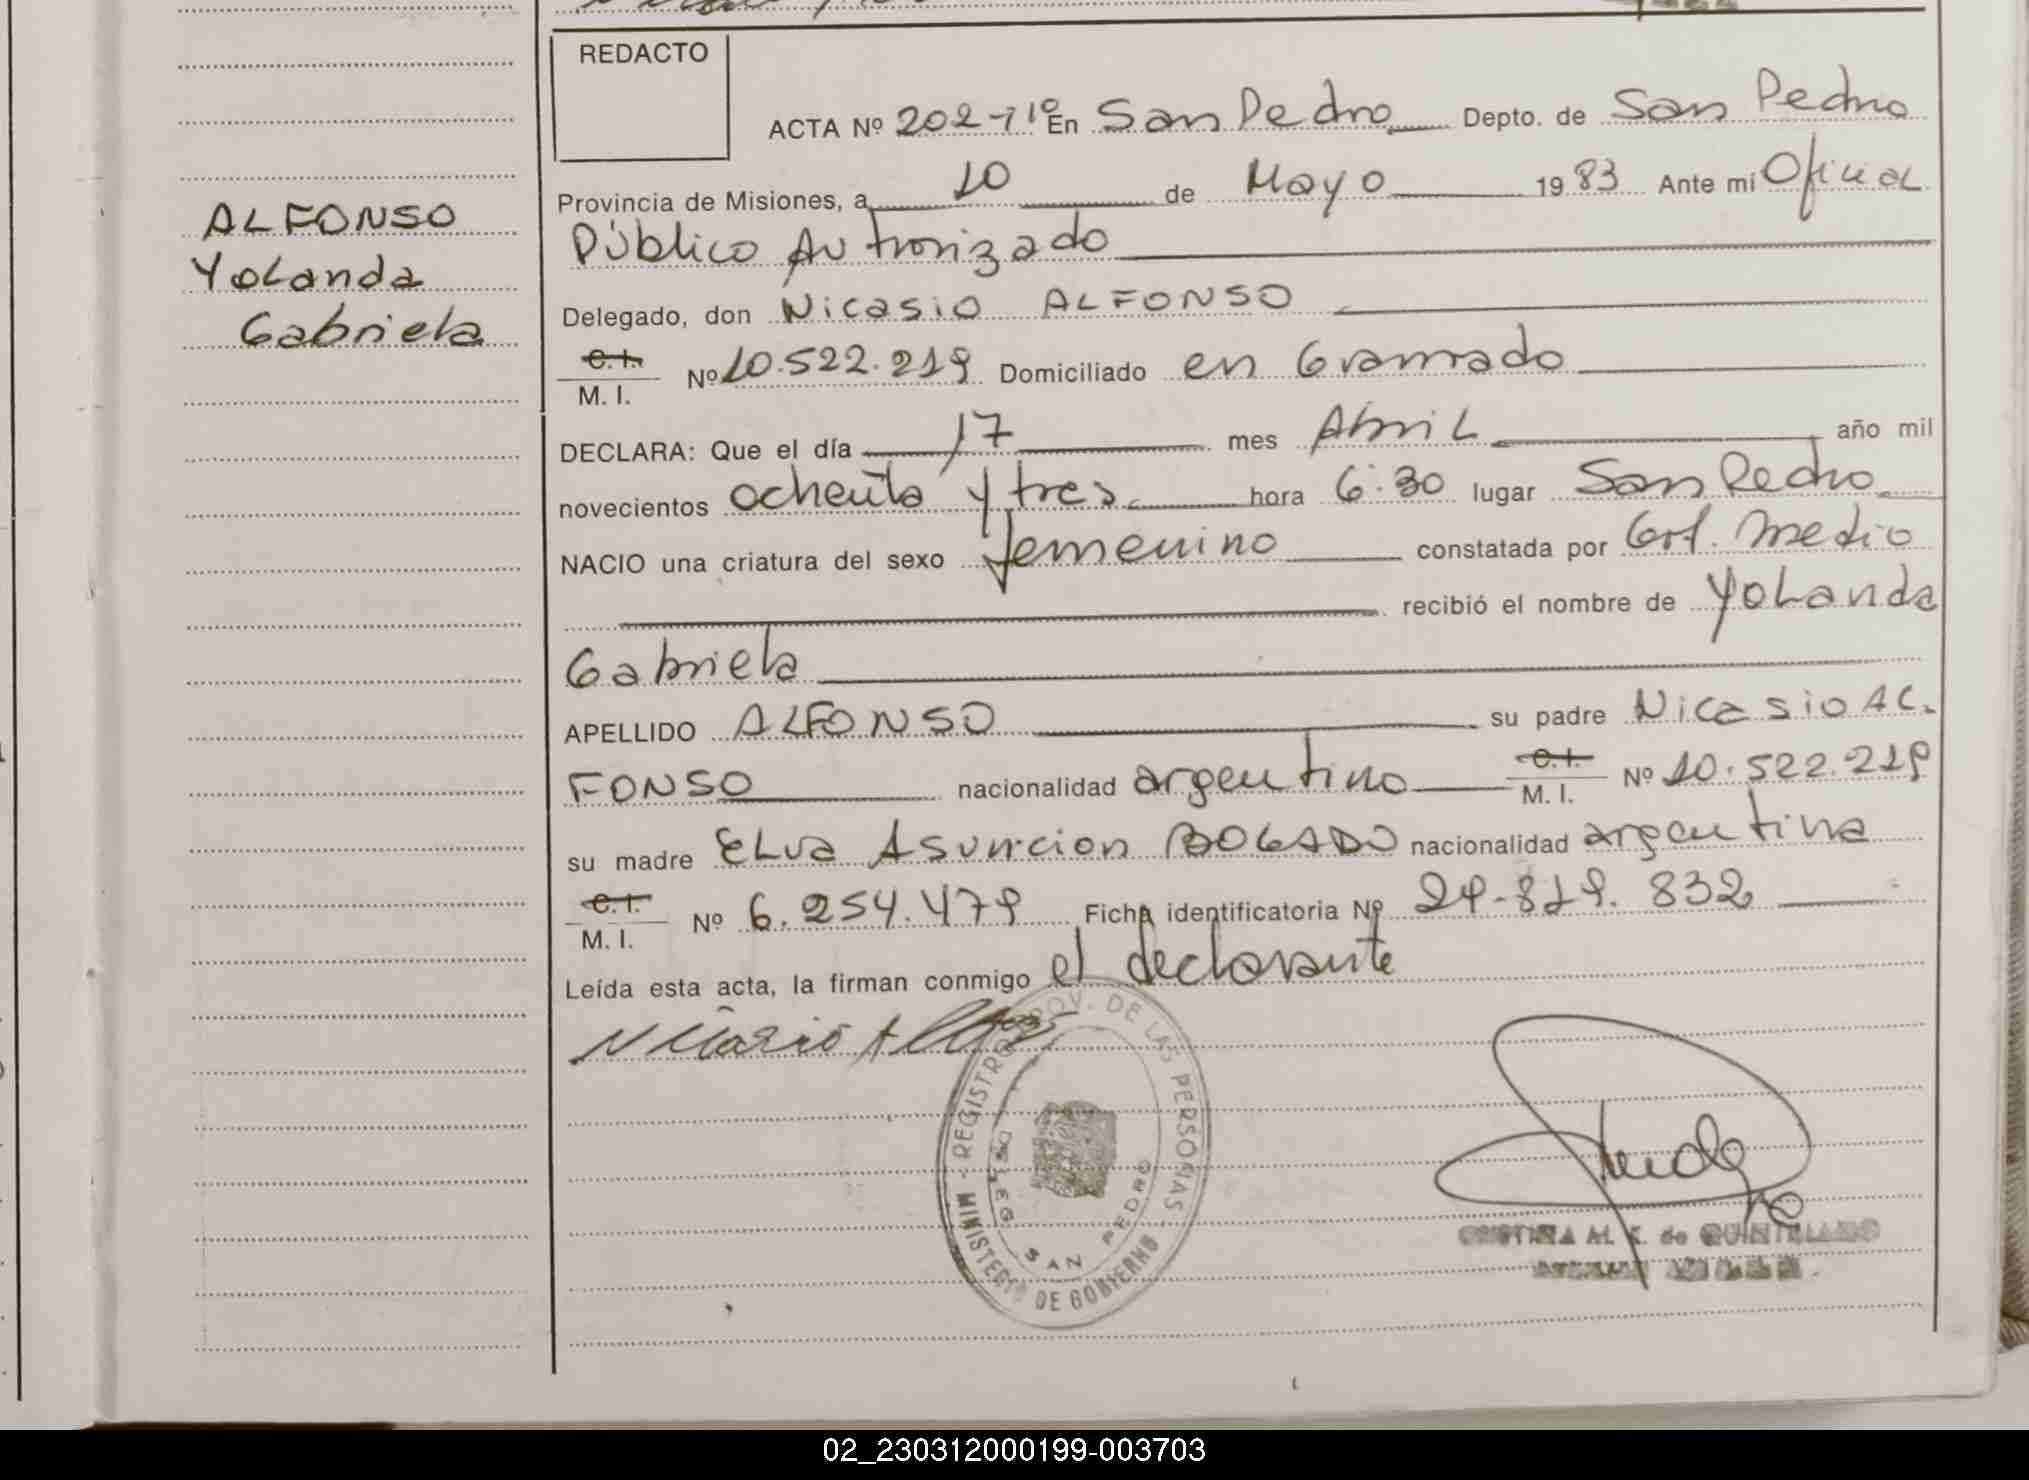 REDACTO
ACTA Nº 202-T1º En San Pedro Depto. de San Pedro
Provincia de Misiones, a 10 de Mayo 1983 Ante mí Oficial
Público Autorizado
ALFONSO
Yolanda
Gabriela
Delegado, don Nicasio ALFONSO
C.I. M. I. Nº 10.522.219 Domiciliado en Gramado
DECLARA: Que el día 17 mes Abril año mil
novecientos ochenta y tres hora 6:30 lugar San Pedro
NACIO una criatura del sexo femenino constatada por Cert. medio
recibió el nombre de Yolanda
Gabriela
APELLIDO ALFONSO su padre Nicasio AL-
FONSO nacionalidad argentino C.I. M. I. Nº 10.522.219
su madre Elva Asuncion BOGADO nacionalidad argentina
C.I. M. I. Nº 6.254.479 Ficha identificatoria Nº 29.819.832
Leída esta acta, la firman conmigo el declarante
REGISTRO PROV. DE LAS PERSONAS
MINISTERIO DE GOBIERNO
DELEG. SAN PEDRO
CRISTINA M. K. de QUINTELLANO
02_230312000199-003703